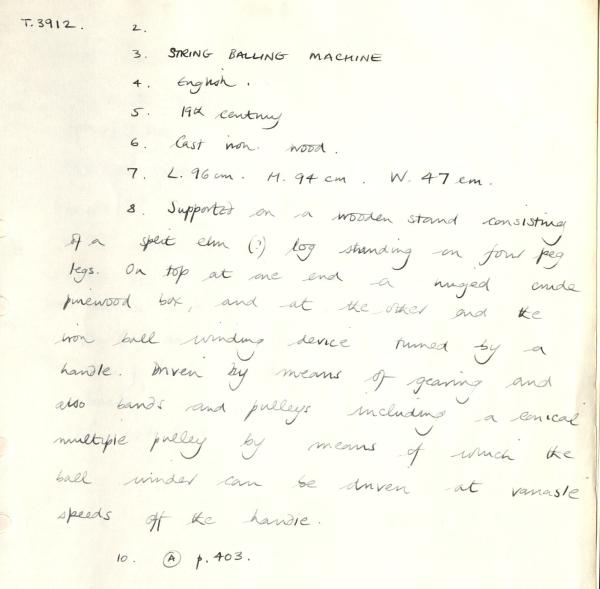 T.3912. 2.
3. STRING BALLING MACHINE
4. English.
5. 19th century
6. Cast iron. wood.
7. L. 96 cm. H. 94 cm. W. 47 cm.
8. Supported on a wooden stand consisting
of a split elm (?) log standing on four peg
legs. On top at one end a hinged crude
pinewood box, and at the other end the
iron ball winding device turned by a
handle. Driven by means of gearing and
also bands and pulleys including a conical
multiple pulley by means of which the
ball winder can be driven at variable
speeds off the handle.
10. Ⓐ p.403.